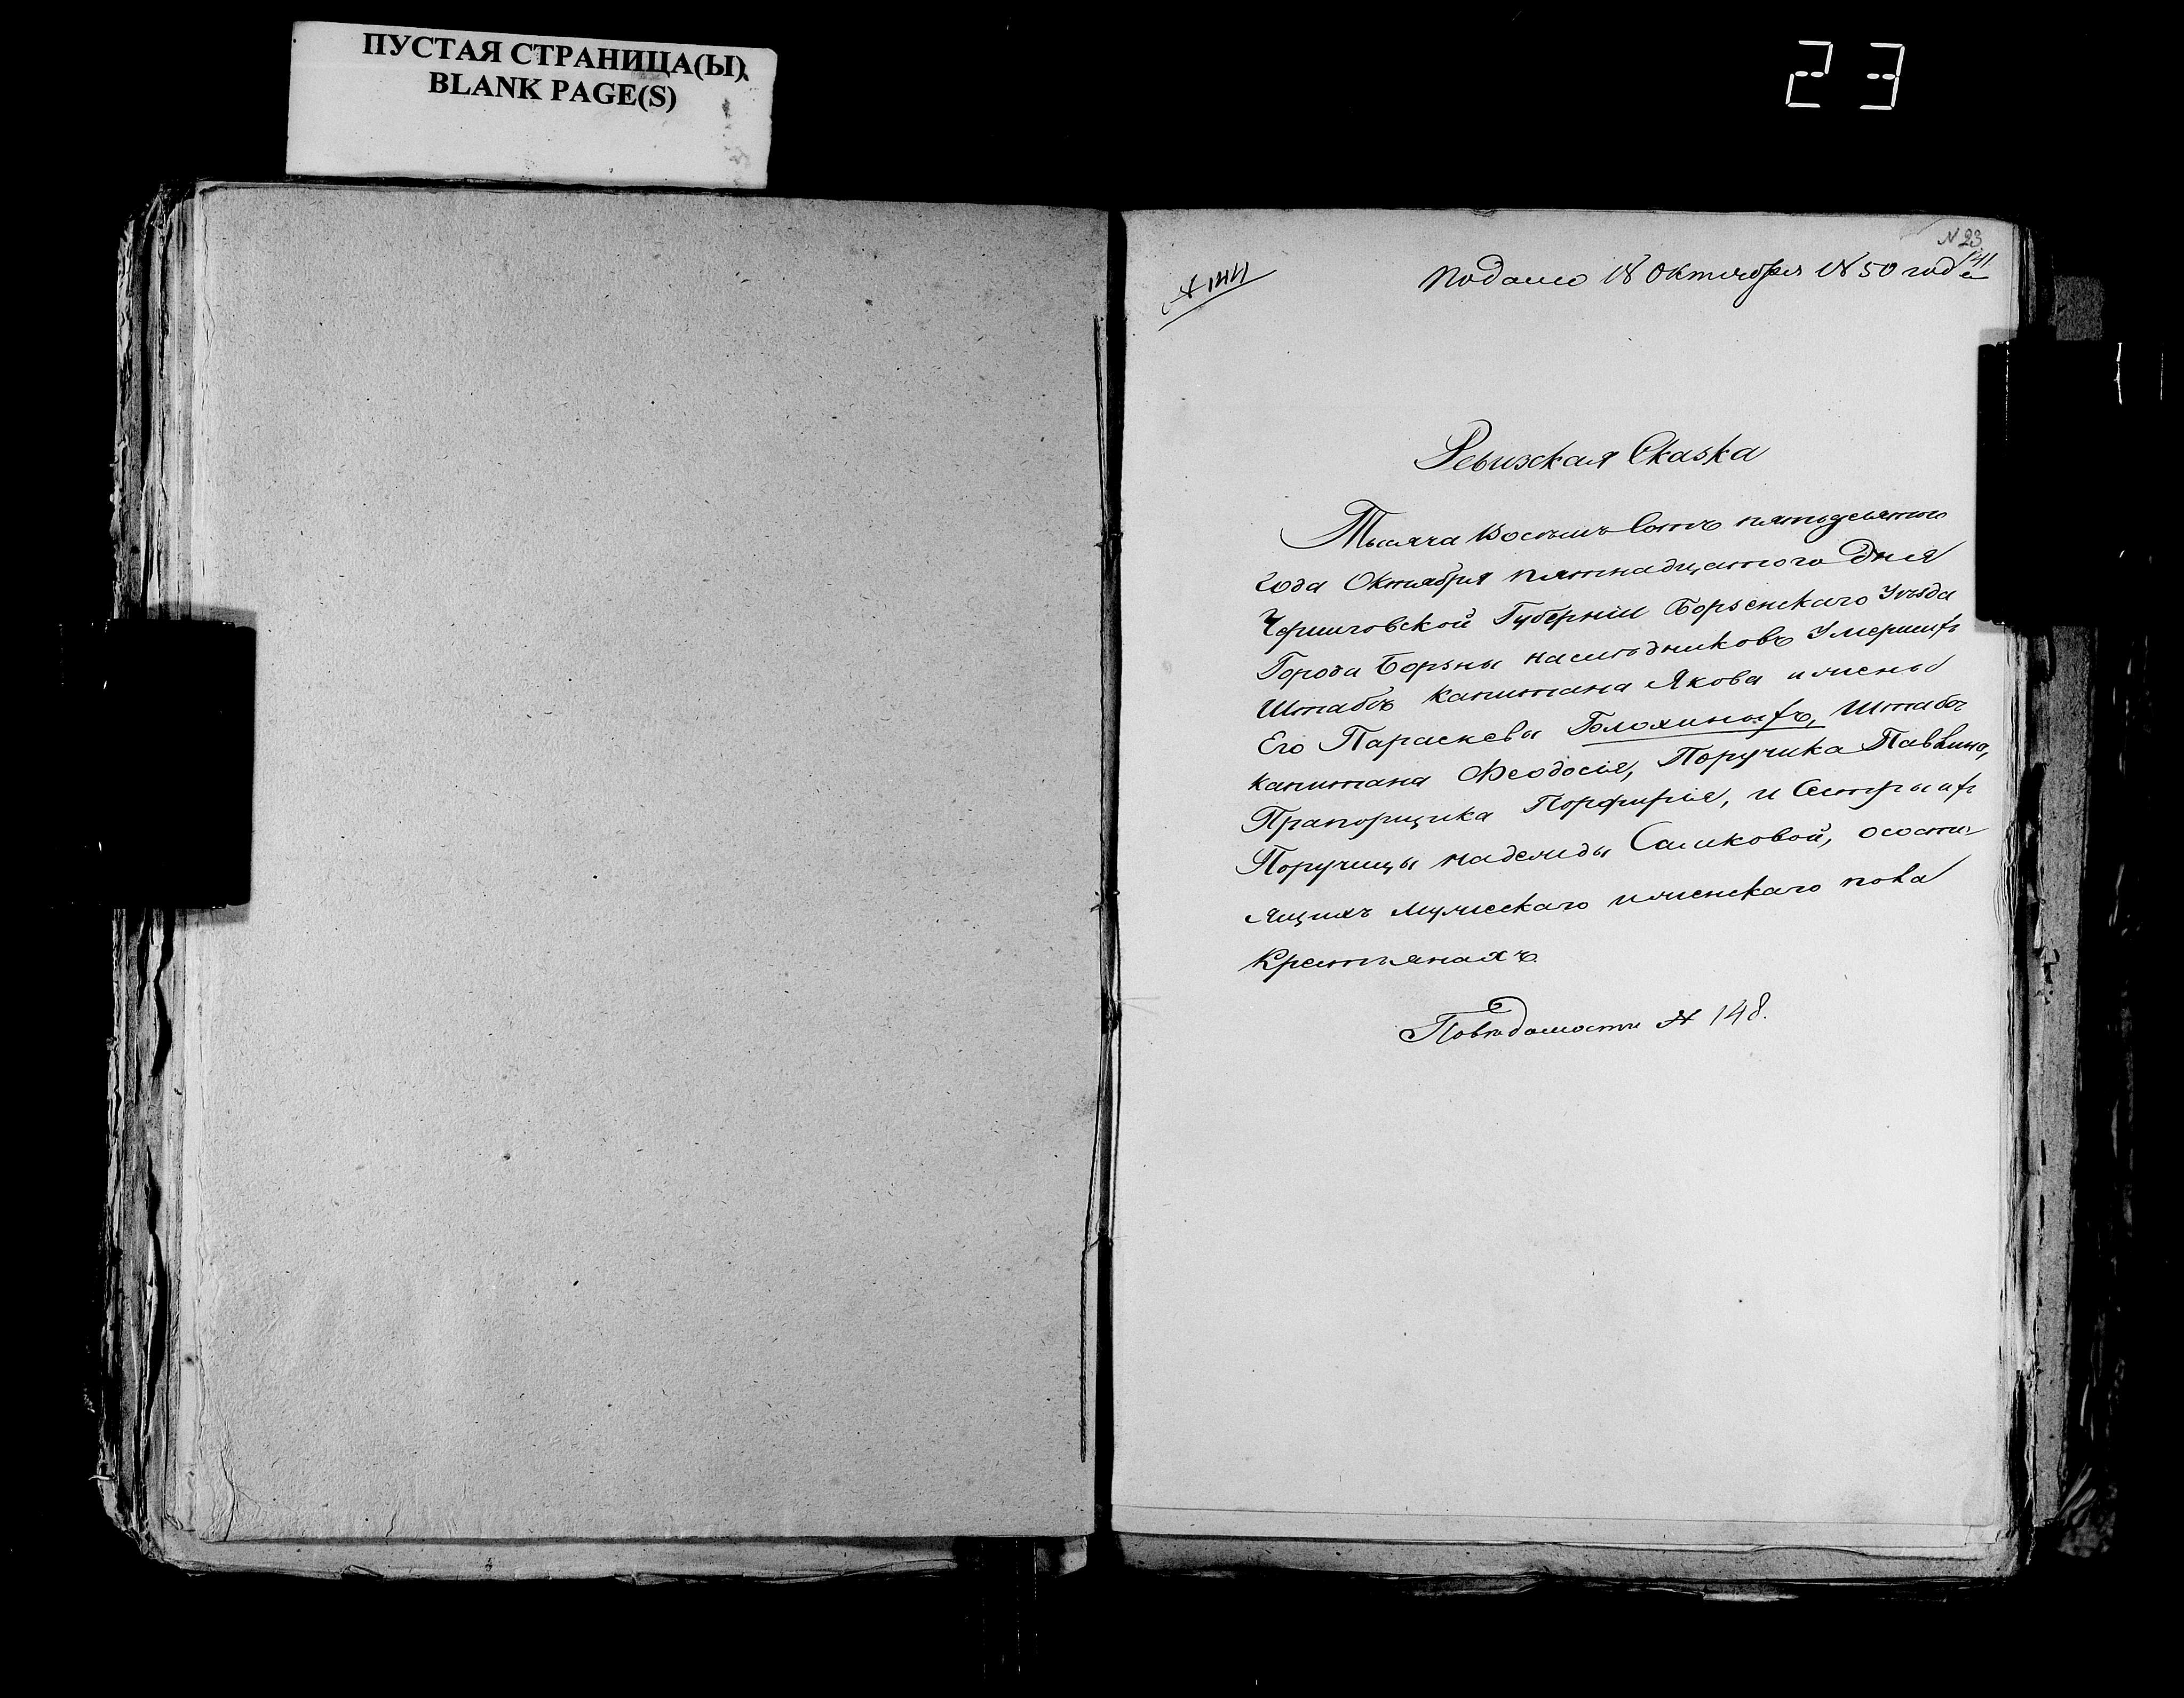 ПУСТАЯ СТРАНИЦА(Ы)
BLANK PAGE(S)
23
N 23
141
№ 144
Подано 18 Октября 1850 года
Ревизская Сказка
Тысяча Восемь Сотъ пятодесятого
Года Октября пятнадцатого Дня
Черниговской Губерніи Борзенскаго Уѣзда
Города Борзны наслѣдниковъ Умершихъ
Штабсъ капитана Якова и жены
Его Параскевы Голохиныхъ, Штабсъ
капитана Феодосія, Поручика Павлина,
Прапорщика Порфирія, и Сестры ихъ
Поручицы надежды Саликовой, осостоя
ящихъ мужескаго и женскаго пола
Крестьянахъ
Повѣдомости № 148.